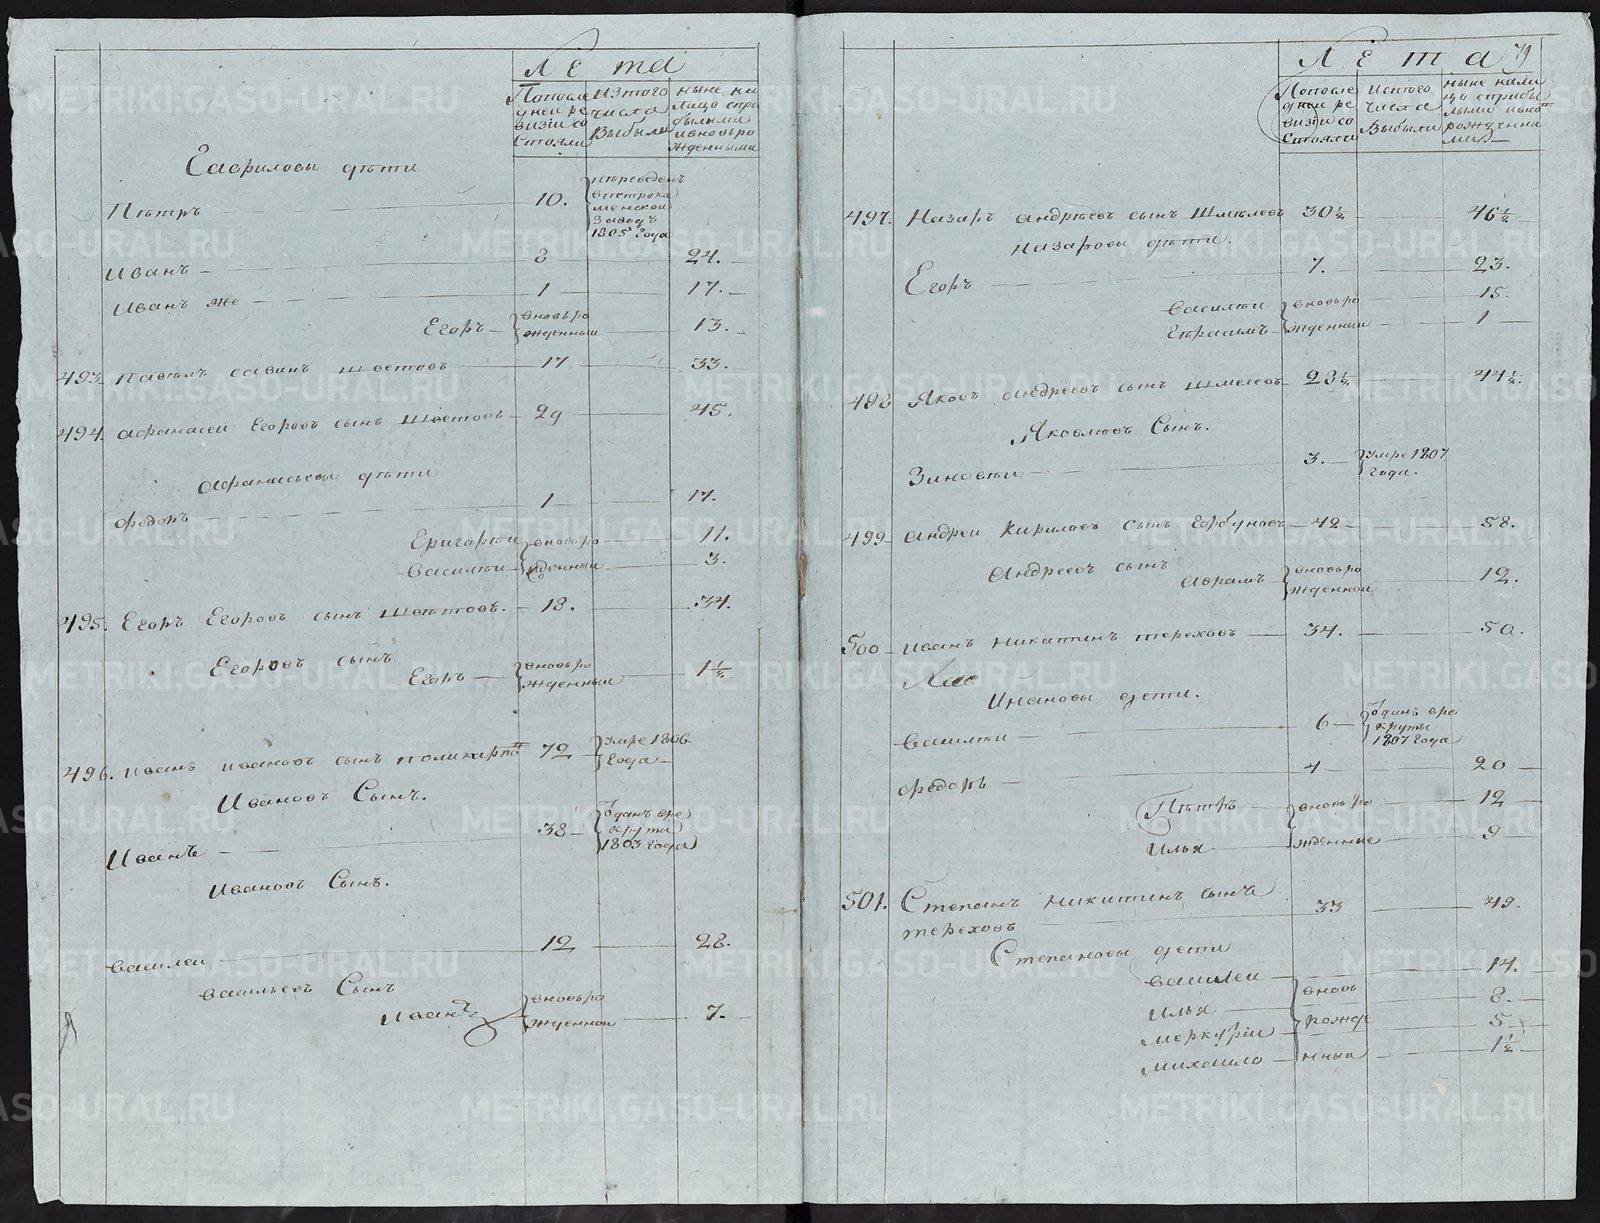 Лета
Попосле
дней ре
визіи со
Стояли
изтого
числа
Выбыли
ныне на
лицо спри
былыми
ивновьро
жденными
Гавриловы дѣти
Пѣтръ 10. пѣреведенъ
выстрока
менской
Заводъ
1805 года
Иванъ 8 24.
Иванъ же 1 17.
Егоръ вновьро
жденный 13.
493 Павѣлъ савинъ Шветовъ 17 33.
494. Афанасеи Егоровъ сынъ Шветовъ 29 45.
Афанасьевы дѣти
Федоръ 1 17.
Григорѣи вновьро 11.
Василѣи жденныи 3.
495. Егоръ Егоровъ сынъ Швѣтовъ. 18. 34.
Егоровъ сынъ
Егоръ вновьро
жденныи 1½
496. Иванъ Ивановъ сынъ Поликарповъ 72 умре 1806
года
Ивановъ Сынъ.
Иванъ 38 отданъ вре
круты
1803 года
Ивановъ Сынъ.
Василеи 12 28.
Васильевъ Сынъ
Иванъ вновьро
жденнои 7.
Лета
79
Попосле
дней ре
визіи со
Стояли
Истого
числа
Выбыли
ныне нали
цо сприбы
лыми ивно
рожденны
ми
497. Назаръ Андрѣевъ сынъ Шмѣлевъ 30½ 46½
Назаровы дѣти.
Егоръ 7. 23.
Василѣи вновьро 15.
Гѣрасимъ жденныи 1
498 Яковъ Андреевъ сынъ Шмелевъ 28½ 44½.
Яковлѣвъ Сынъ.
Зиновѣи 3. умре 1807
года.
499 Андреи Кириловъ сынъ Горбуновъ 42 58.
Андреевъ сынъ
Аврамъ вновьро
жденнои 12.
500 Иванъ Никитинъ тереховъ 34. 50.
Ивановы дети.
Василѣи 6 отданъ вре
круты
1807 года
Федоръ 4 20
Пѣтръ вновьро 12
Илья жденные 9
501. Степанъ Никитинъ сынъ
тереховъ 33 49.
Степановы дети
Василеи 14.
Илья вновь 8.
Меркуріи рожде 5
Михаило нныя 1½
METRIKI.GASO-URAL.RU